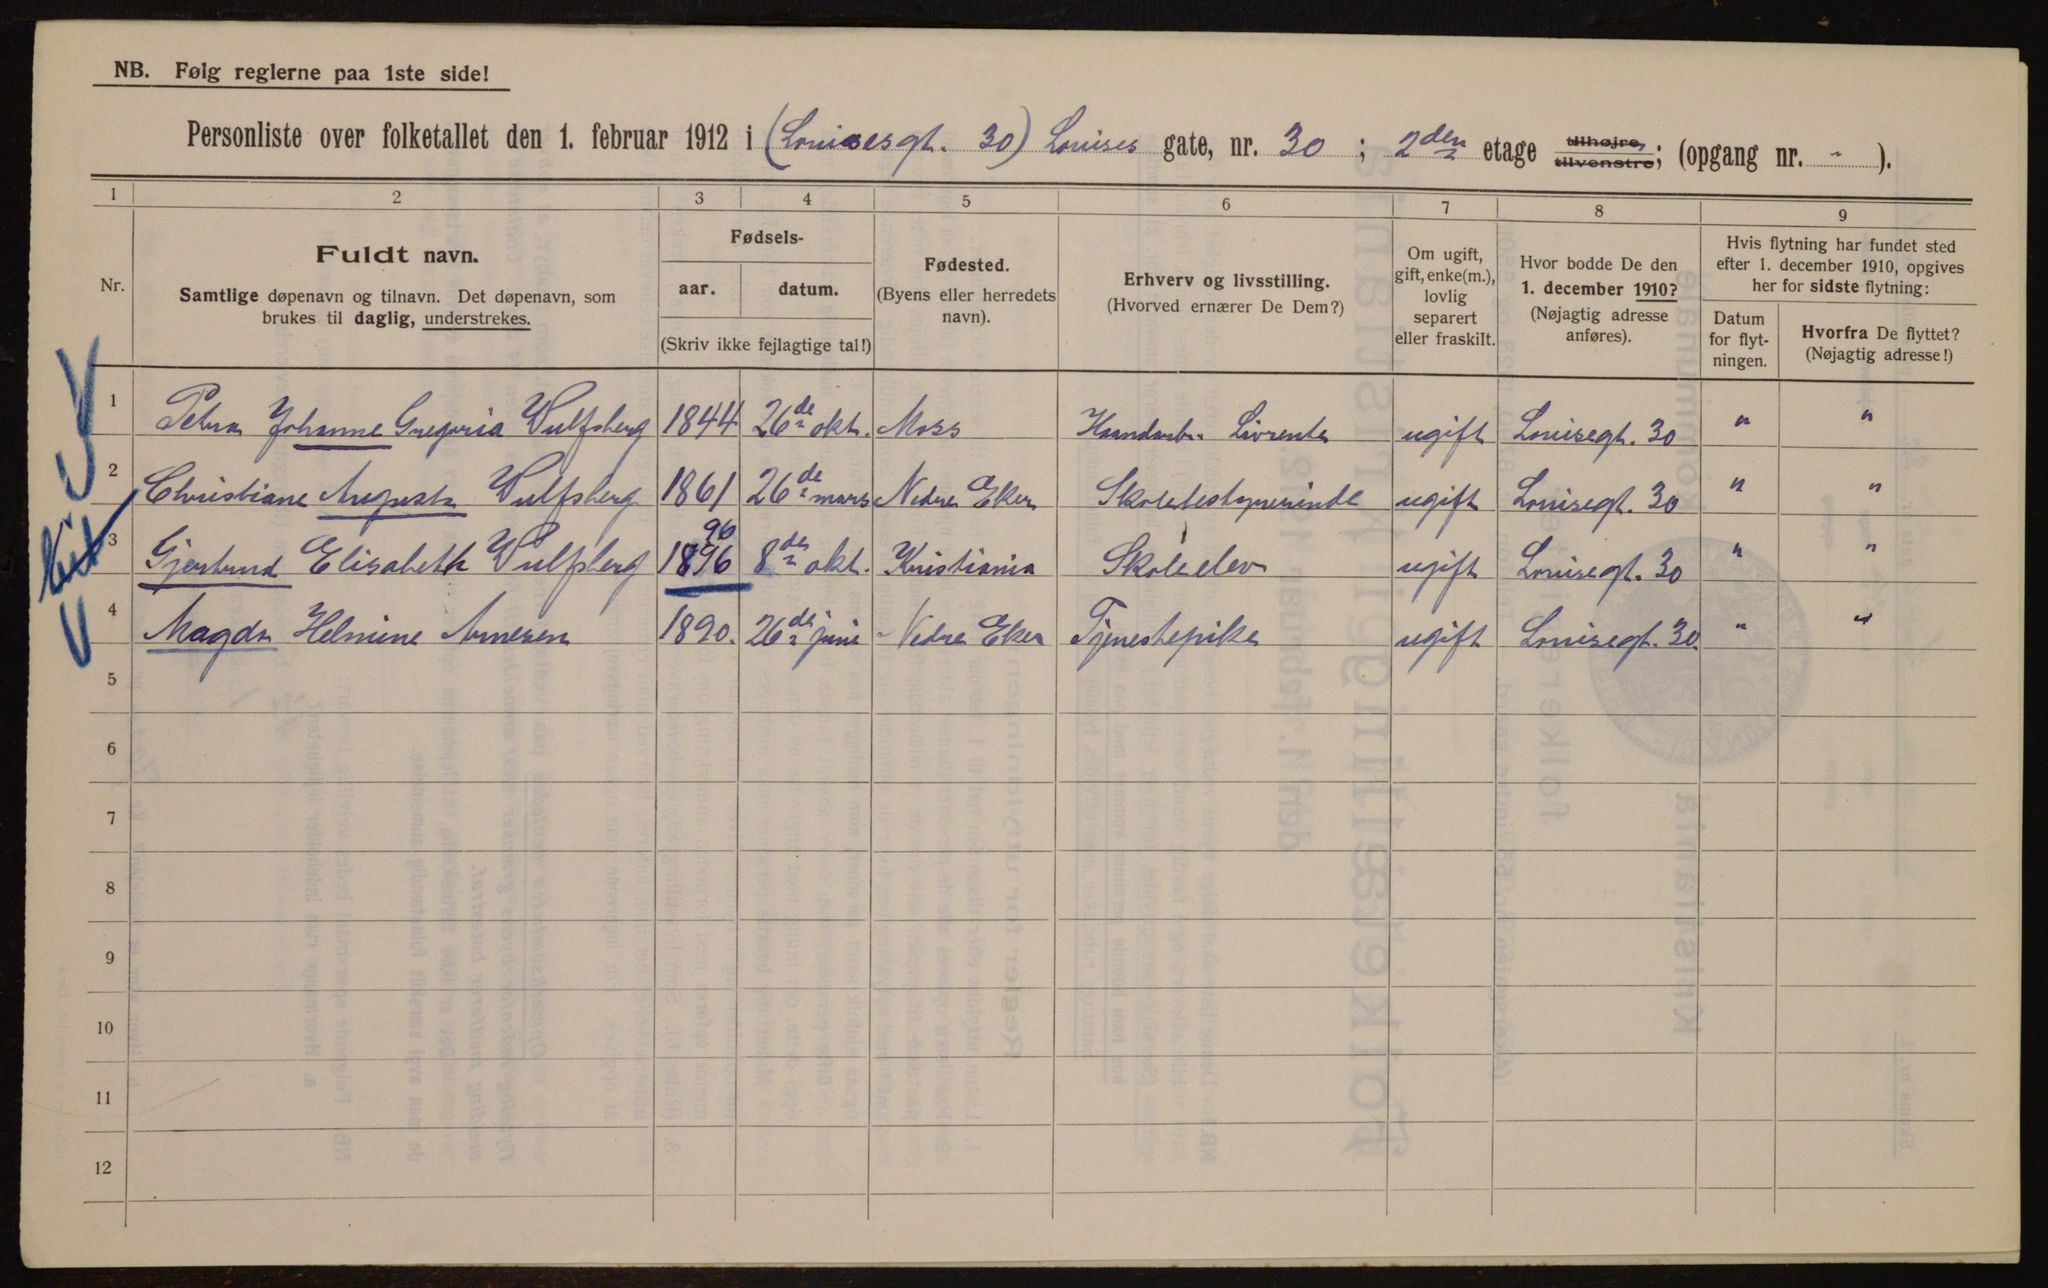 NB. Følg reglerne paa 1ste side!
Personliste over folketallet den 1. februar 1912 i (Louisesgt. 30) Louises gate, nr. 30 ; 2den etage tilhøjre, tilvenstre; (opgang nr. " ).
1 2 3 4 5 6 7 8 9
Nr.
Fuldt navn.
Samtlige døpenavn og tilnavn. Det døpenavn, som
brukes til daglig, understrekes.
Fødsels-
aar. datum.
(Skriv ikke fejlagtige tal!)
Fødested.
(Byens eller herredets
navn).
Erhverv og livsstilling.
(Hvorved ernærer De Dem?)
Om ugift,
gift, enke(m.),
lovlig
separert
eller fraskilt.
Hvor bodde De den
1. december 1910?
(Nøjagtig adresse
anføres).
Hvis flytning har fundet sted
efter 1. december 1910, opgives
her for sidste flytning:
Datum
for flyt-
ningen.
Hvorfra De flyttet?
(Nøjagtig adresse!)
1 Petra Johanne Gregoria Wulfsberg 1844 26de okt. Moss Haandarb. Livrente ugift Louisegt. 30 " "
2 Christiane Augusta Wulfsberg 1861 26de mars Nedre Eker Skolebestyrerinde ugift Louisegt. 30 " "
96
3 Gjertrud Elisabeth Wulfsberg 1896 8de okt. Kristiania Skoleelev ugift Louisegt. 30 " "
4 Magda Helmine Arnesen 1890. 26de juni Nedre Eker Tjenestepike ugift Louisegt. 30. " "
5
6
7
8
9
10
11
12